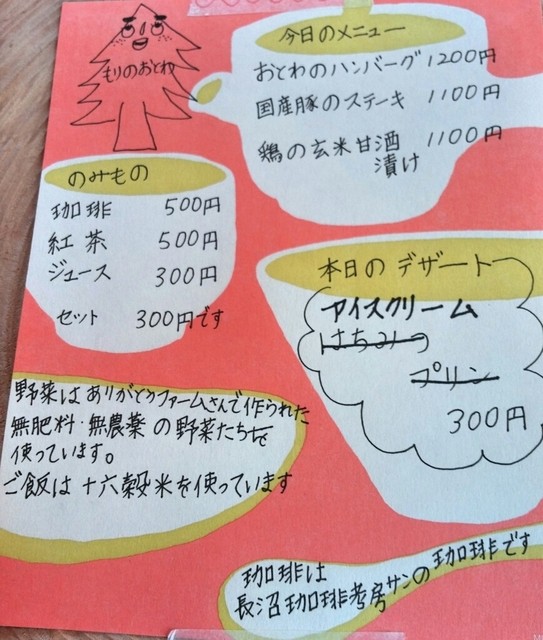 もりのおとわ
今日のメニュー
おとわのハンバーグ 1200円
国産豚のステーキ 1100円
鶏の玄米甘酒 1100円
漬け
のみもの
珈琲 500円
紅茶 500円
ジュース 300円
セット 300円です
本日のデザート
アイスクリーム
はちみつ
プリン
300円
野菜はありがとうファームさんで作られた
無肥料・無農薬の野菜たちを
使っています。
ご飯は十六穀米を使っています
珈琲は
長沼珈琲考房サンの珈琲です